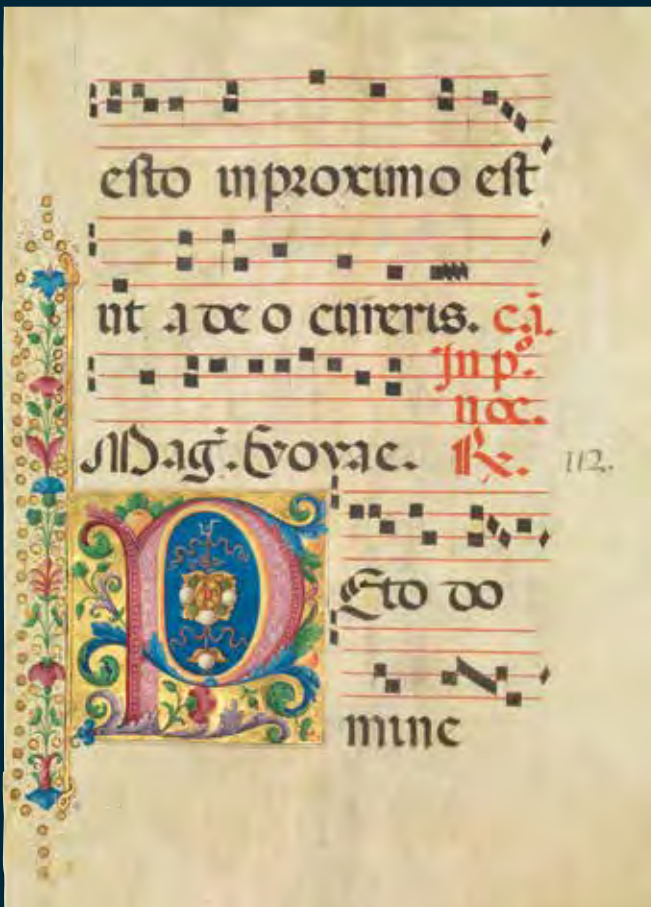 esto in proximo est
ut a deo cureris. c.i.
In pº.
noc.
Mag̃. Evovae. R.
112.
PEto do
mine